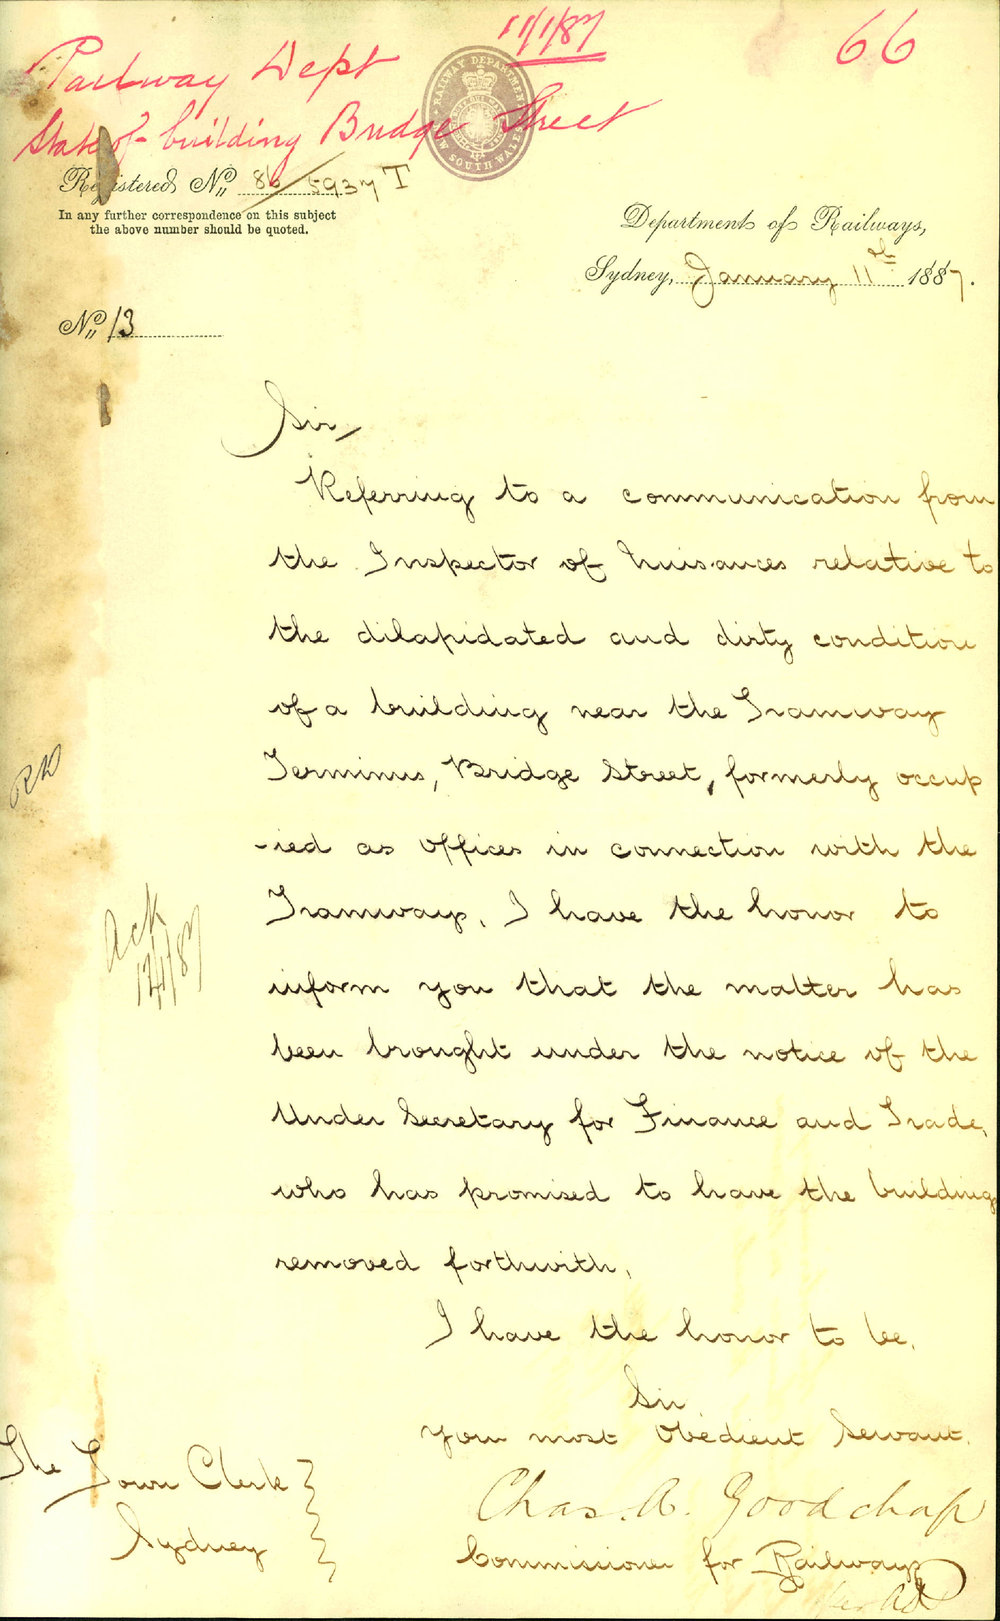 11/1/87
66
Railway Dept
State of building Bridge Street
RAILWAY DEPARTMENT
NEW SOUTH WALES
Registered No. 86/5937 T
In any further correspondence on this subject
the above number should be quoted.
Department of Railways,
Sydney, January 11th 1887.
No. 13
Sir,
Referring to a communication from
the Inspector of Nuisances relative to
the dilapidated and dirty condition
of a building near the Tramway
Terminus, Bridge Street, formerly occup
-ied as offices in connection with the
Tramways, I have the honor to
inform you that the matter has
been brought under the notice of the
Under Secretary for Finance and Trade,
who has promised to have the building
removed forthwith.
I have the honor to be,
Sir
Your most Obedient Servant,
Chas. A. Goodchap
Commissioner for Railways
The Town Clerk
Sydney
Ack
12/1/87